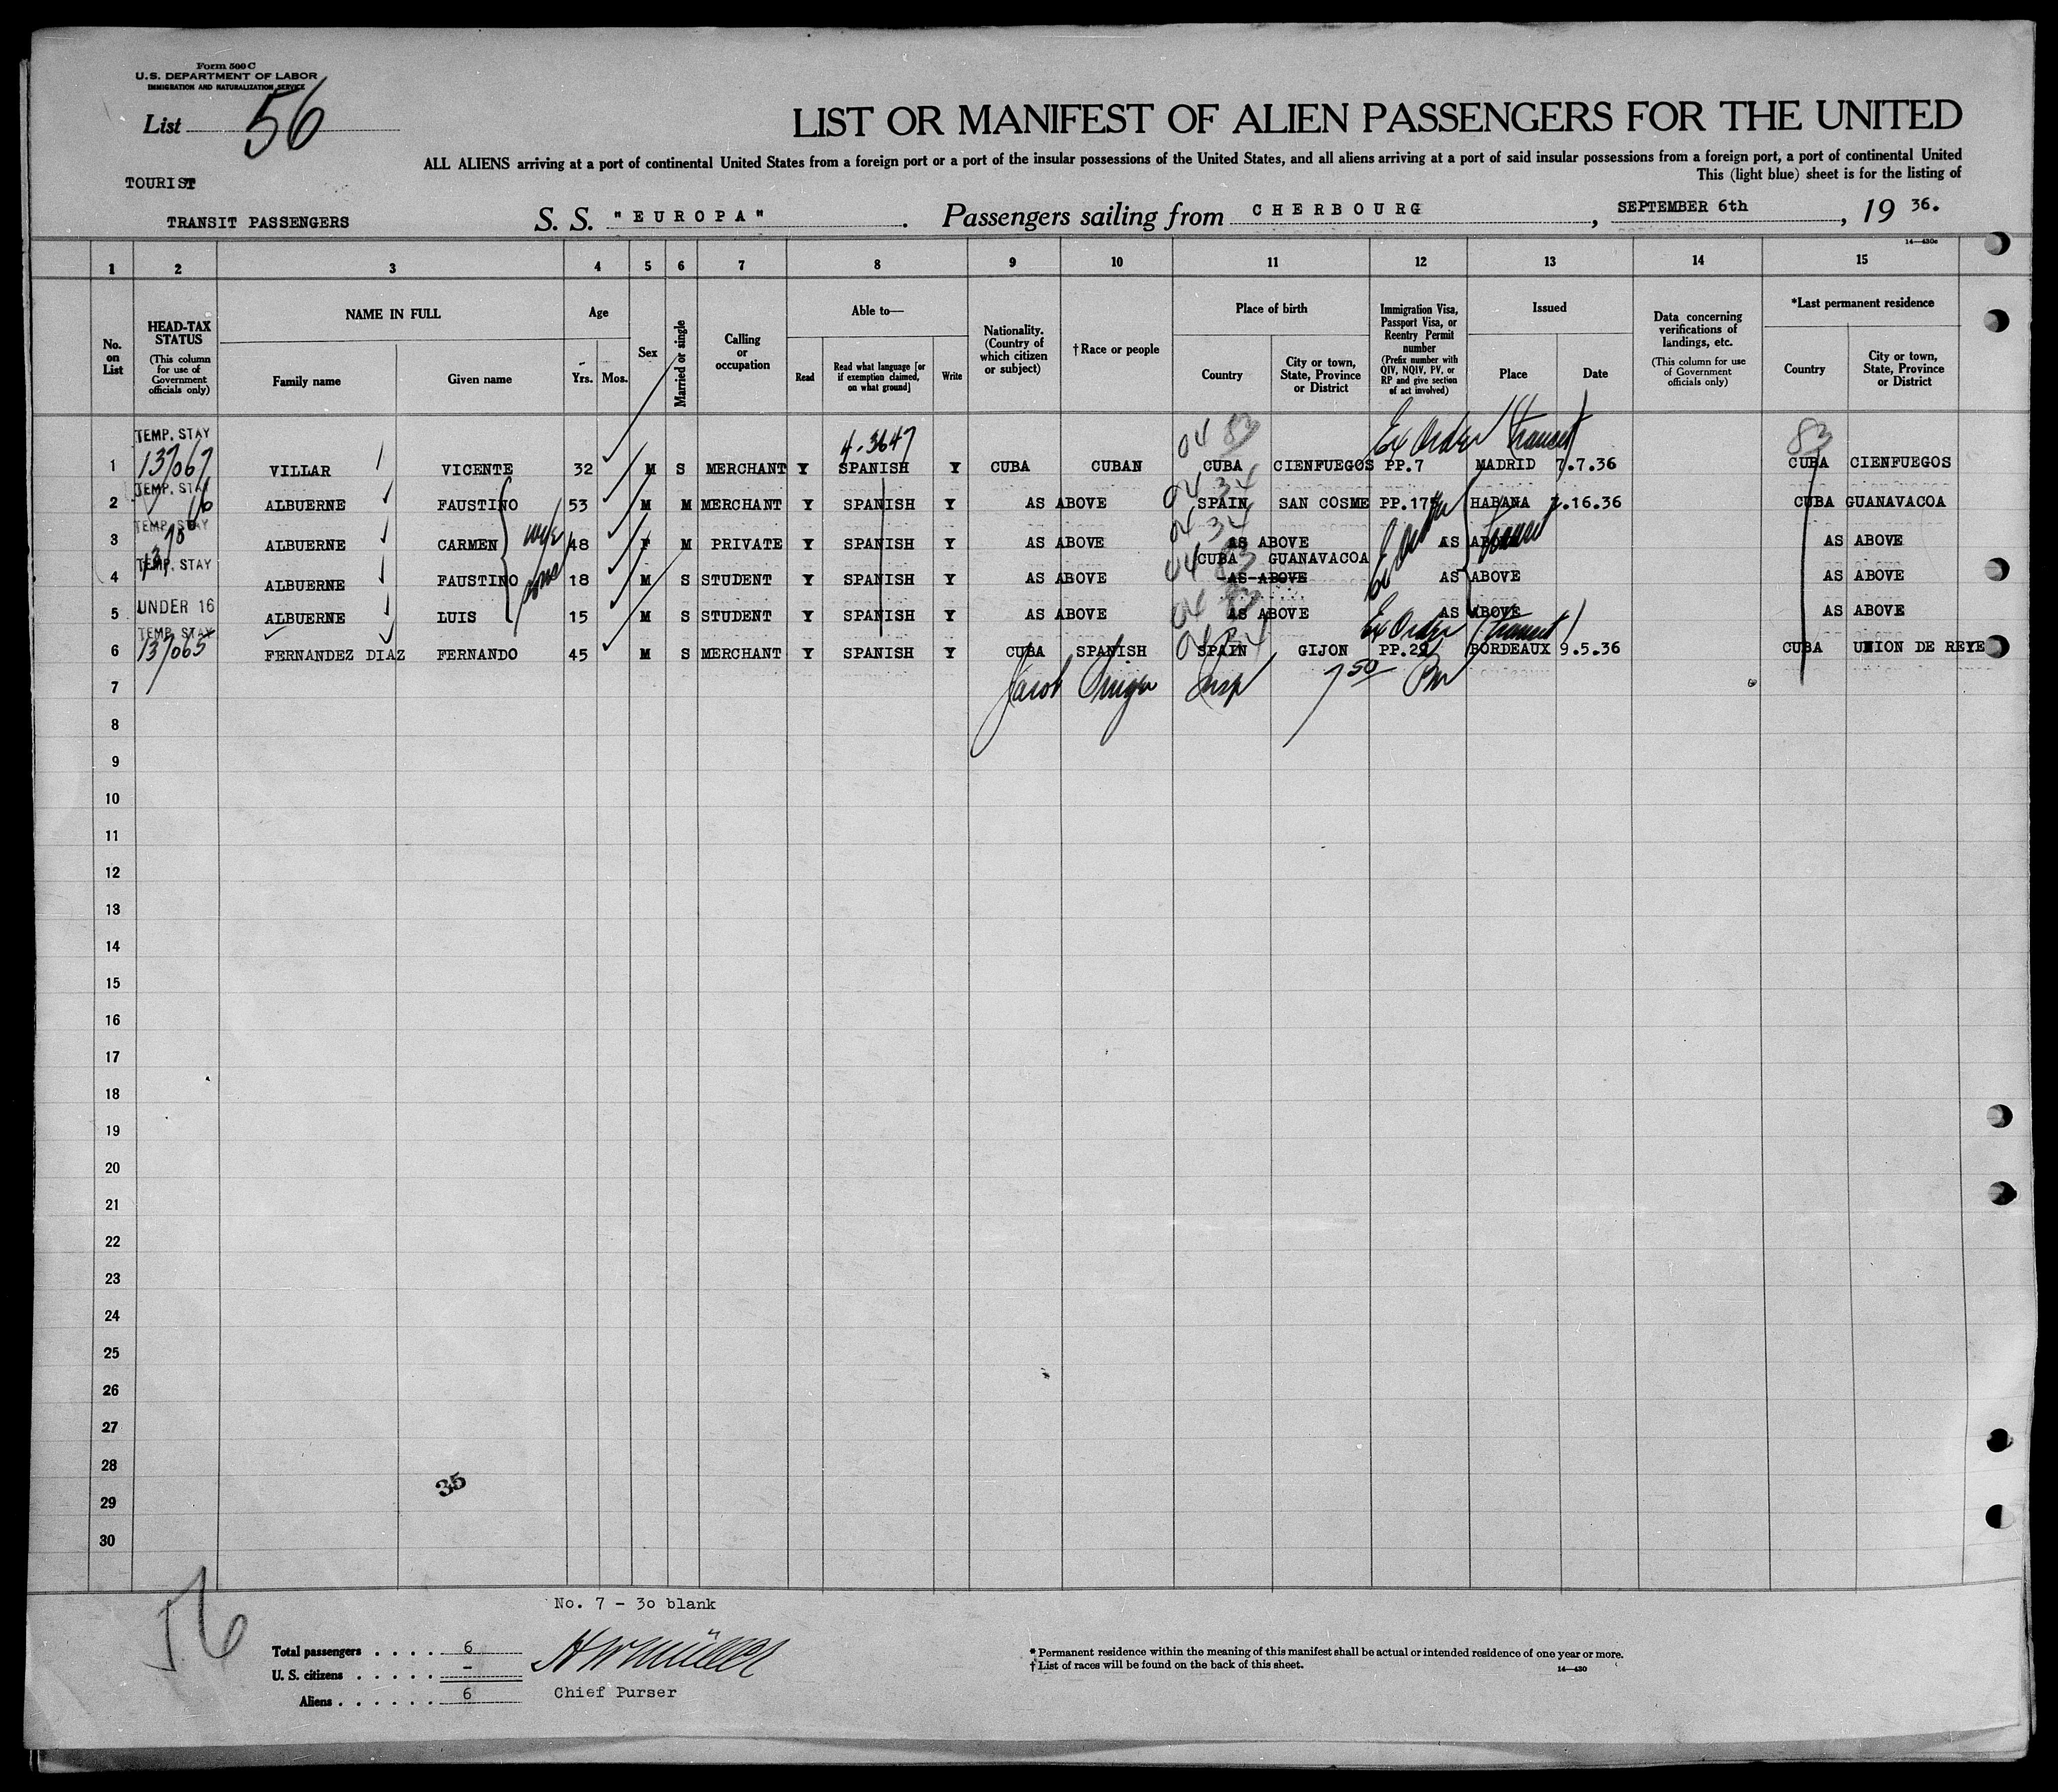 Form 500 C
U.S. DEPARTMENT OF LABOR
IMMIGRATION AND NATURALIZATION SERVICE
List 56
LIST OR MANIFEST OF ALIEN PASSENGERS FOR THE UNITED
ALL ALIENS arriving at a port of continental United States from a foreign port or a port of the insular possessions of the United States, and all aliens arriving at a port of said insular possessions from a foreign port, a port of continental United
This (light blue) sheet is for the listing of
TOURIST
TRANSIT PASSENGERS
S. S. "EUROPA". Passengers sailing from CHERBOURG, SEPTEMBER 6th, 19 36.
14—430c
1 2 3 4 5 6 7 8 9 10 11 12 13 14 15
No. on List
HEAD-TAX STATUS
(This column for use of Government officials only)
NAME IN FULL
Family name
Given name
Age
Yrs. Mos.
Sex
Married or single
Calling or occupation
Able to—
Read
Read what language [or if exemption claimed, on what ground]
Write
Nationality. (Country of which citizen or subject)
†Race or people
Place of birth
Country
City or town, State, Province or District
Immigration Visa, Passport Visa, or Reentry Permit number
(Prefix number with QIV, NQIV, PV, or RP and give section of act involved)
Issued
Place
Date
Data concerning verifications of landings, etc.
(This column for use of Government officials only)
*Last permanent residence
Country
City or town, State, Province or District
TEMP. STAY 4-3647 04 83 Ex Order Transit 83
1 137067 VILLAR VICENTE 32 M S MERCHANT Y SPANISH Y CUBA CUBAN CUBA CIENFUEGOS PP.7 MADRID 7.7.36 CUBA CIENFUEGOS
TEMP. STAY 04 34
2 ALBUERNE FAUSTINO 53 M M MERCHANT Y SPANISH Y AS ABOVE SPAIN SAN COSME HABANA 7.16.36 CUBA GUANAVACOA
TEMP. STAY wife 04 34 Transit
3 ALBUERNE CARMEN 48 F M PRIVATE Y SPANISH Y AS ABOVE AS ABOVE AS ABOVE AS ABOVE
TEMP. STAY sons 04 83 CUBA GUANAVACOA
4 ALBUERNE FAUSTINO 18 M S STUDENT Y SPANISH Y AS ABOVE AS ABOVE AS ABOVE AS ABOVE
UNDER 16 04 83
5 ALBUERNE LUIS 15 M S STUDENT Y SPANISH Y AS ABOVE AS ABOVE AS ABOVE AS ABOVE
TEMP. STAY 04 34 Ex Order Transit
6 137065 FERNANDEZ DIAZ FERNANDO 45 M S MERCHANT Y SPANISH Y CUBA SPANISH SPAIN GIJON BORDEAUX 9.5.36 CUBA UNION DE REYE
7 Jacob Insp 7 50 PM
8
9
10
11
12
13
14
15
16
17
18
19
20
21
22
23
24
25
26
27
28
35
29
30
56
No. 7 - 30 blank
Total passengers . . . . 6
U. S. citizens . . . . . -
Aliens . . . . . . 6
H W Müller
Chief Purser
* Permanent residence within the meaning of this manifest shall be actual or intended residence of one year or more.
† List of races will be found on the back of this sheet.
14—430